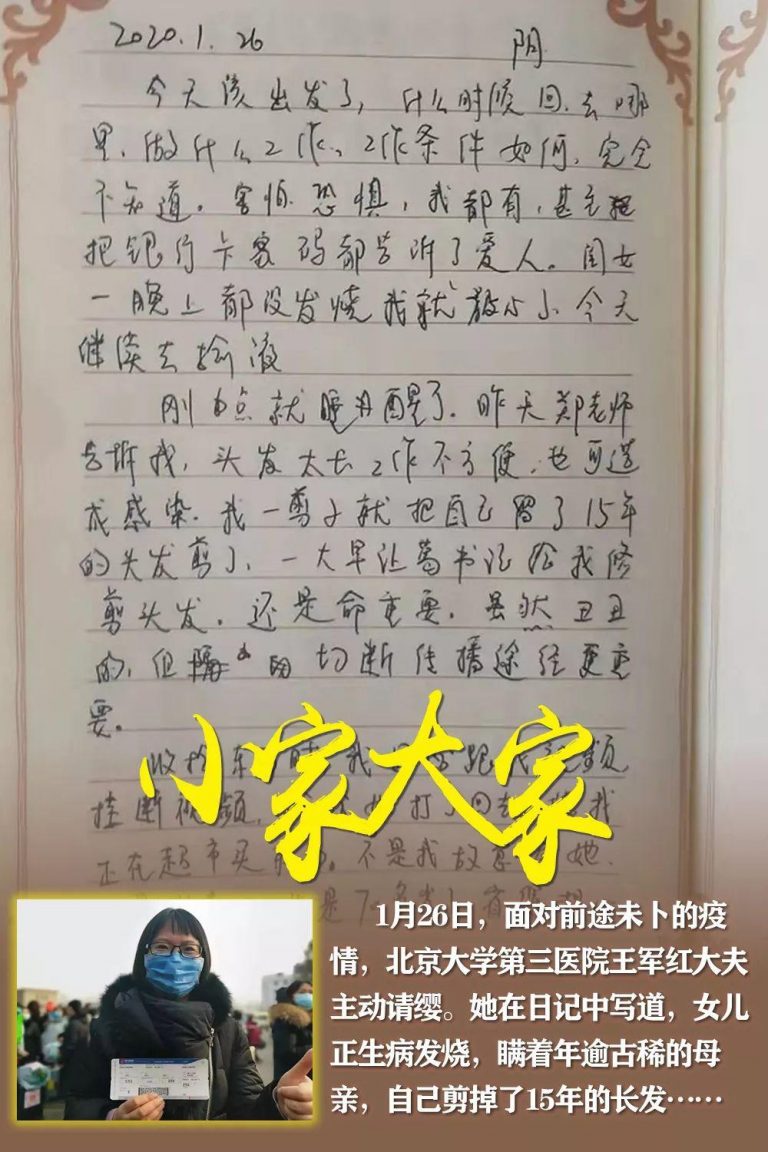 2020.1.26 阴
今天该出发了，什么时候回.去哪
里，做什么工作、工作条件如何，完全
不知道。害怕恐惧，我都有，甚至
把银行卡密码都告诉了爱人。闺女
一晚上都没发烧我就放心了、今天
继续去输液
刚6点就睡醒了.昨天郑老师
告诉我，头发太长工作不方便，也可造
成感染.我一剪子就把自己留了15年
的头发剪了、一大早让葛书记给我修
剪头发.还是命重要.虽然丑丑
的，但 切断传播途径更重
要。
收拾东 时 我 跟我视频
挂断视频， 打了回去 我
正在超市买 。不是我故 她.
是70多岁
小家大家
1月26日，面对前途未卜的疫
情，北京大学第三医院王军红大夫
主动请缨。她在日记中写道，女儿
正生病发烧，瞒着年逾古稀的母
亲，自己剪掉了15年的长发……